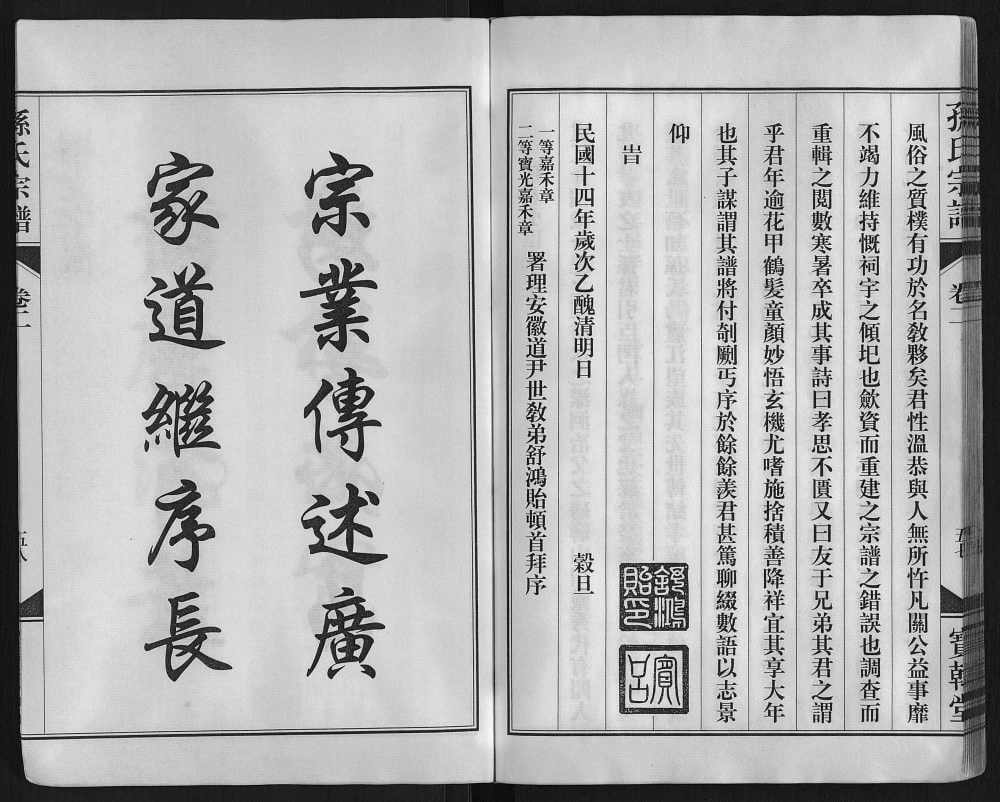 孫氏宗譜
卷一
五七
寶翰堂
風俗之質樸有功於名教夥矣君性溫恭與人無所忤凡關公益事靡
不竭力維持慨祠宇之傾圯也歛資而重建之宗譜之錯誤也調查而
重輯之閱數寒暑卒成其事詩曰孝思不匱又曰友于兄弟其君之謂
乎君年逾花甲鶴髮童顏妙悟玄機尤嗜施捨積善降祥宜其享大年
也其子謀謂其譜將付剞劂丐序於餘餘羨君甚篤聊綴數語以志景
仰
旹
民國十四年歲次乙醜清明日 穀旦
一等嘉禾章
二等寶光嘉禾章
署理安徽道尹世教弟舒鴻貽頓首拜序
舒鴻貽印
賓呂
宗業傳述廣
家道繼序長
孫氏宗譜
卷一
五八